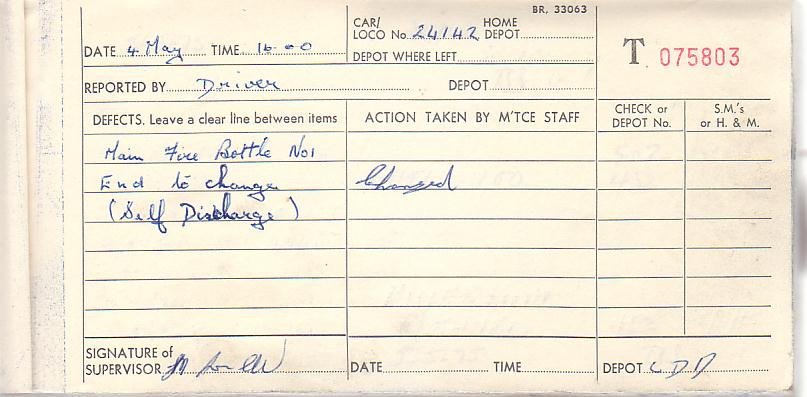 BR. 33063
DATE 4 May TIME 16-00
CAR/ LOCO No 24142 HOME DEPOT
DEPOT WHERE LEFT
T 075803
REPORTED BY Driver DEPOT
DEFECTS. Leave a clear line between items
ACTION TAKEN BY M'TCE STAFF
CHECK or DEPOT No.
S.M.'s or H. & M.
Main Fire Bottle No1
End to change Changed
(Self Discharge)
SIGNATURE of SUPERVISOR
DATE TIME
DEPOT CDD